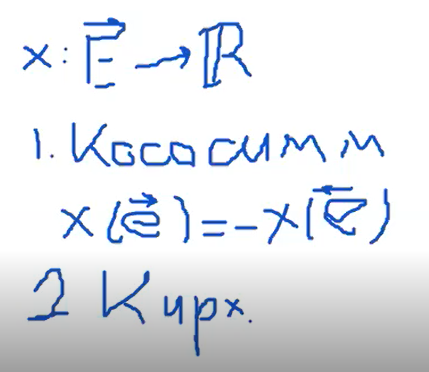 x: E⃗ → ℝ
1. Кососимм
x(e⃗) = -x(e⃖)
2 Кирх.